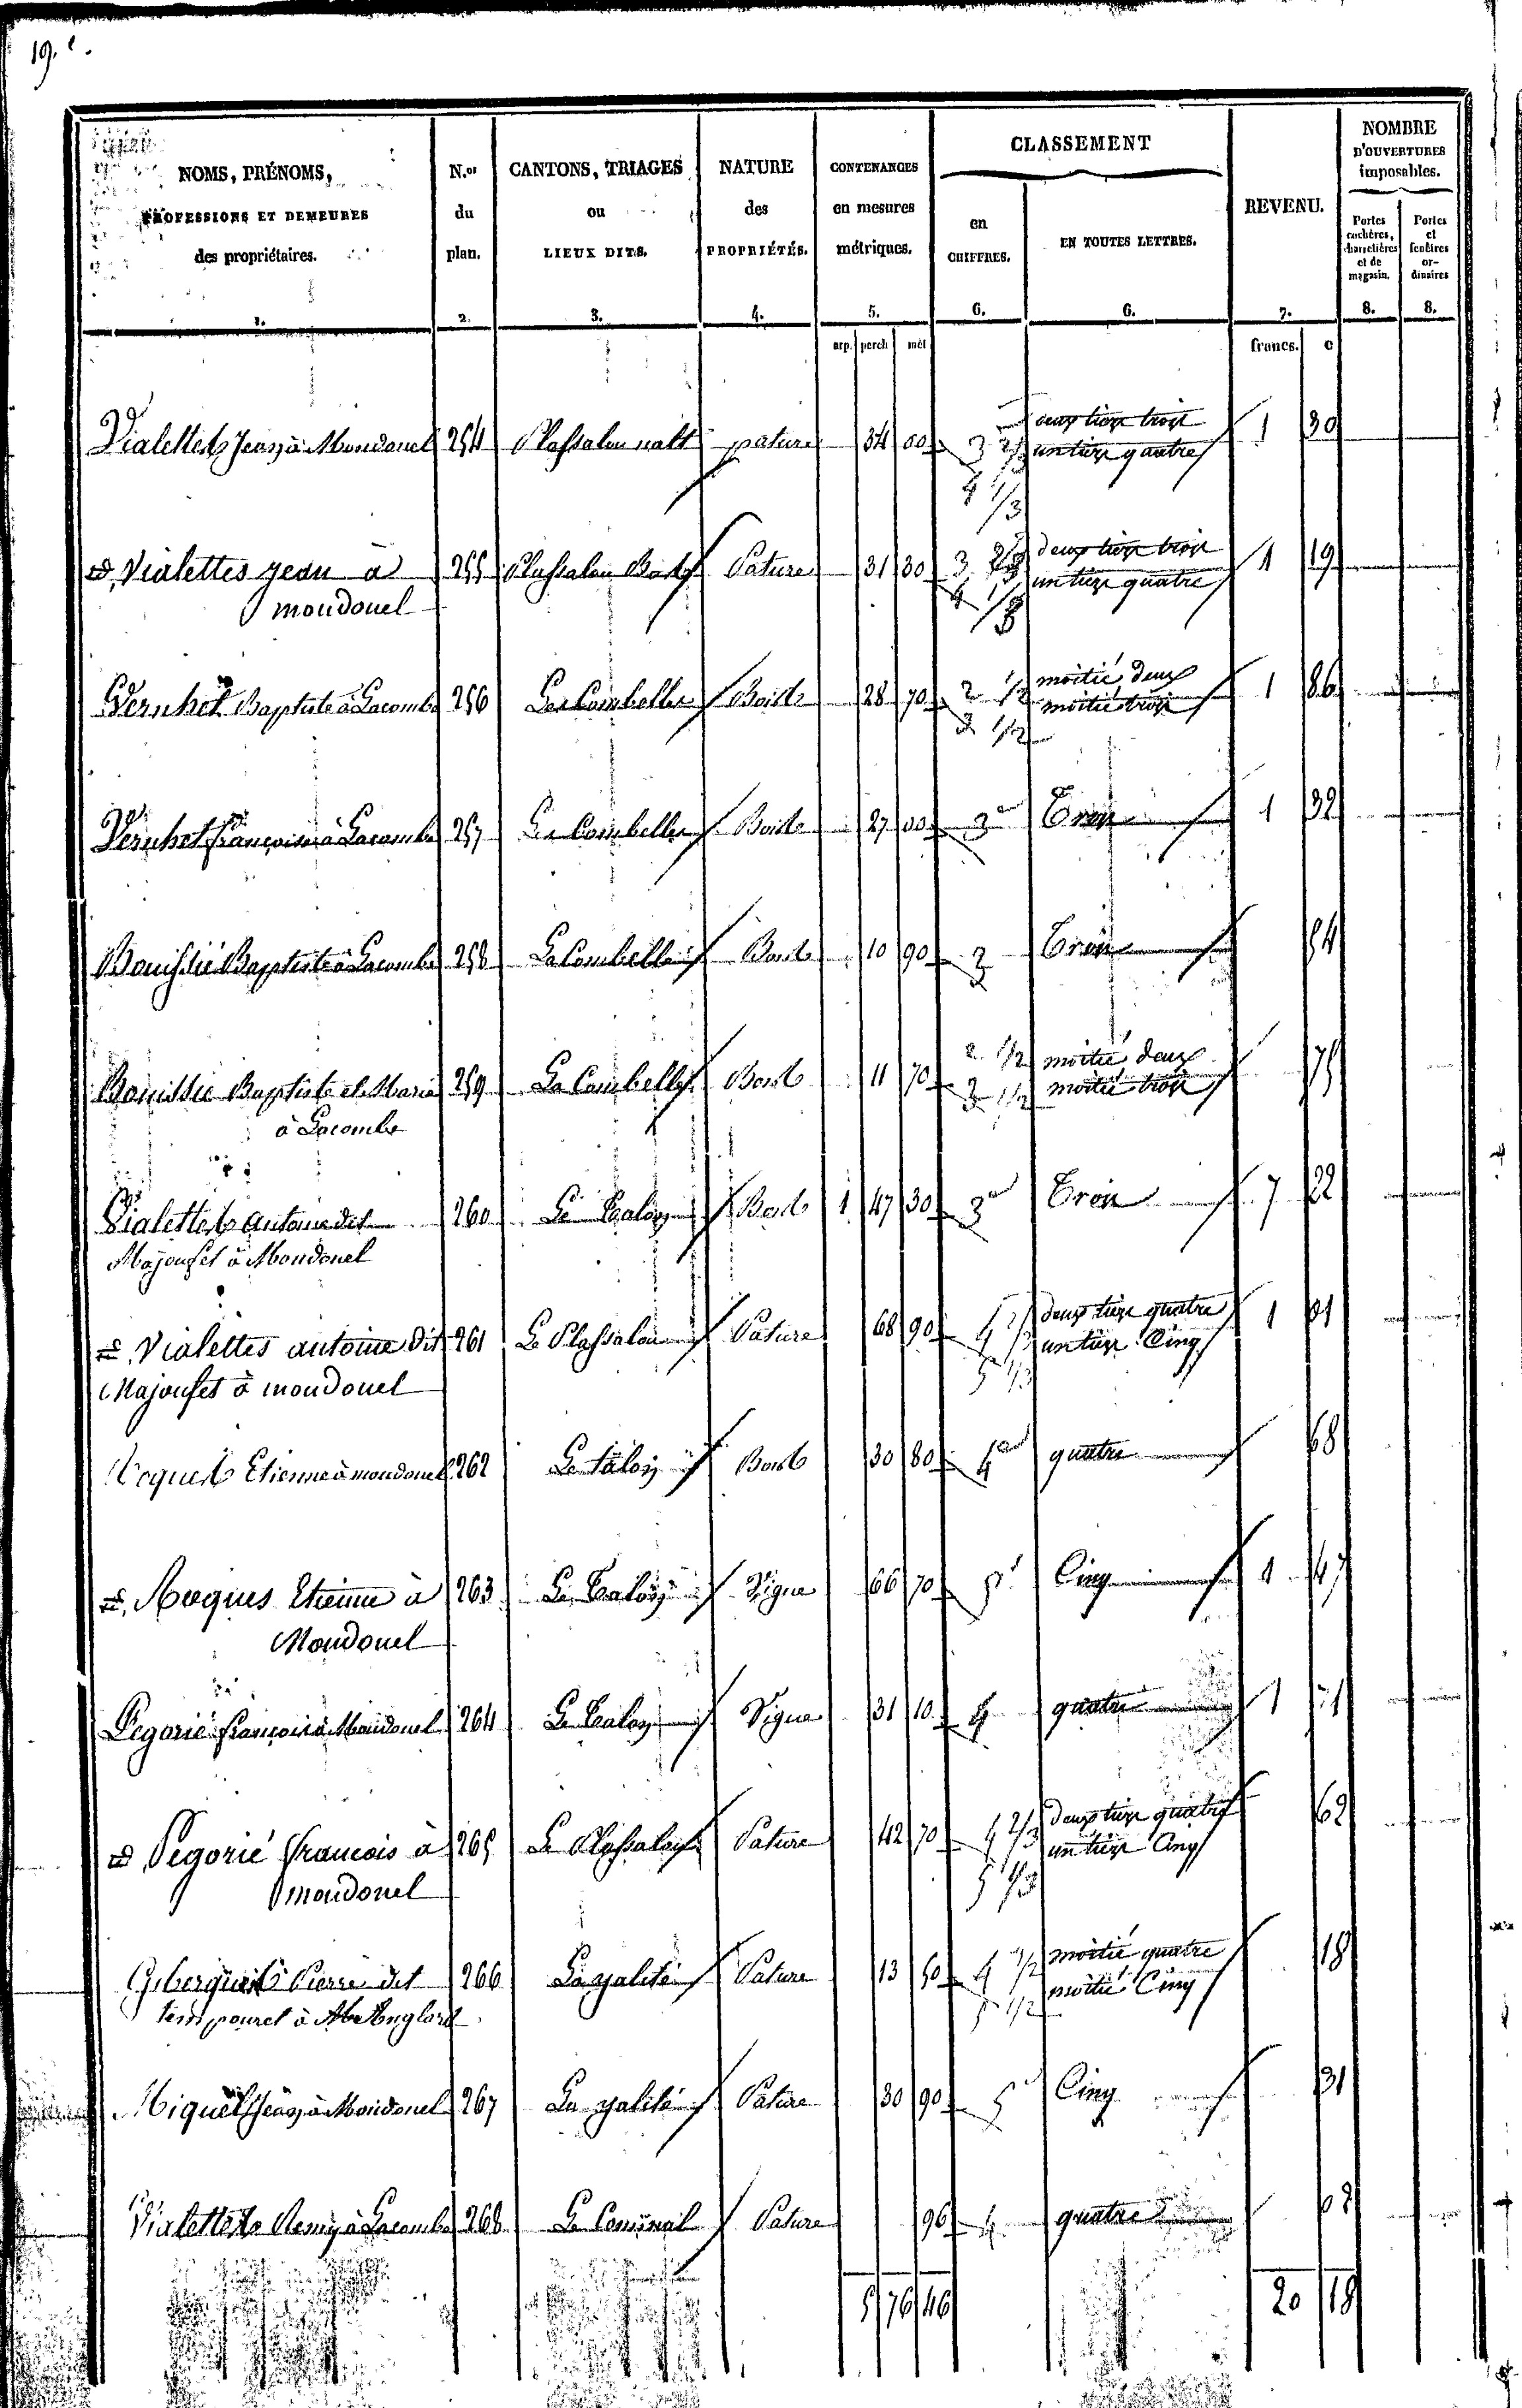 19.e
NOMS, PRÉNOMS, PROFESSIONS ET DEMEURES des propriétaires. 1.
N.os du plan. 2.
CANTONS, TRIAGES ou LIEUX DITS. 3.
NATURE des PROPRIÉTÉS. 4.
CONTENANCES en mesures métriques. 5.
CLASSEMENT
en CHIFFRES. 6.
EN TOUTES LETTRES. 6.
REVENU. 7.
NOMBRE D'OUVERTURES imposables.
Portes cochères, charretières et de magasin. 8.
Portes et fenêtres ordinaires 8.
arp. perch mèt francs. c
Vialettes Jean à Mondouel 254 Plassalou nalt pature 34 00 3 2/3 deux tiers trois 1 30
4 1/3 un tiers quatre
Vialettes jean à 255 Plassalou Bas Pature 31 30 3 2/3 deux tiers trois 1 19
mondouel 4 1/3 un tiers quatre
Vernhet Baptiste à Lacombe 256 Les Combelles Bois 28 70 2 1/2 moitié deux 1 86
3 1/2 moitié trois
Vernhet françois à Lacombe 257 Les Combelles Bois 27 00 3 Trois 1 32
Bouissié Baptiste à Lacombe 258 La Combelle Bois 10 90 3 Trois 54
Bouissie Baptiste et Marie 259 La Combelle Bois 11 70 2 1/2 moitié deux 75
à Lacombe 3 1/2 moitié trois
Vialettes Antoine dit 260 Le Talou Bois 1 47 30 3 Trois 7 22
Majouset à Mondouel
Vialettes antoine dit 261 Le Plassalou Pature 68 90 4 2/3 deux tiers quatre 1 91
Majouset à mondouel 5 1/3 un tiers Cinq
Etienne à mondouel 262 Le talou Bois 30 80 4 quatre 68
Etienne à 263 Le Talou Vigne 66 70 5 Cinq 1 47
Mondouel
Pegorié françois à Mondouel 264 Le Talou Vigne 31 10 4 quatre 1 71
Pegorié francois à 265 Le Plassalou Pature 42 70 4 2/3 deux tiers quatre 62
mondouel 5 1/3 un tiers Cinq
Pierre dit 266 La galité Pature 13 50 4 1/2 moitié quatre 18
à 5 1/2 moitié Cinq
Miquel Jean à Mondouel 267 La galité Pature 30 90 5 Cinq 31
Vialettes Remy à Lacombe 268 Le Cominal Pature 96 4 quatre 02
5 76 46 20 18